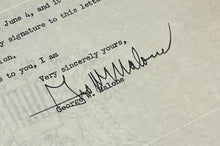 June 4, and it
y signature to this lette
ion.
s to you, I am
Very sincerely yours,
Geo W Malone
George W. Malone